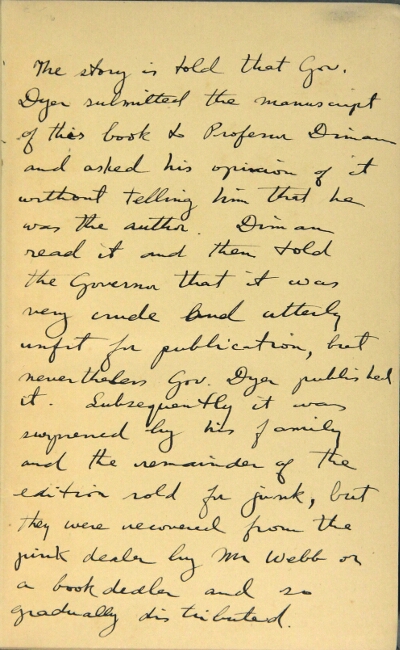 The story is told that Gov.
Dyer submitted the manuscript
of this book to Professor Diman
and asked his opinion of it
without telling him that he
was the author. Diman
read it and then told
the Governor that it was
very crude and utterly
unfit for publication, but
nevertheless Gov. Dyer published
it. Subsequently it was
suppressed by his family
and the remainder of the
edition sold for junk, but
they were recovered from the
junk dealer by Mr Webb or
a book dealer and so
gradually distributed.